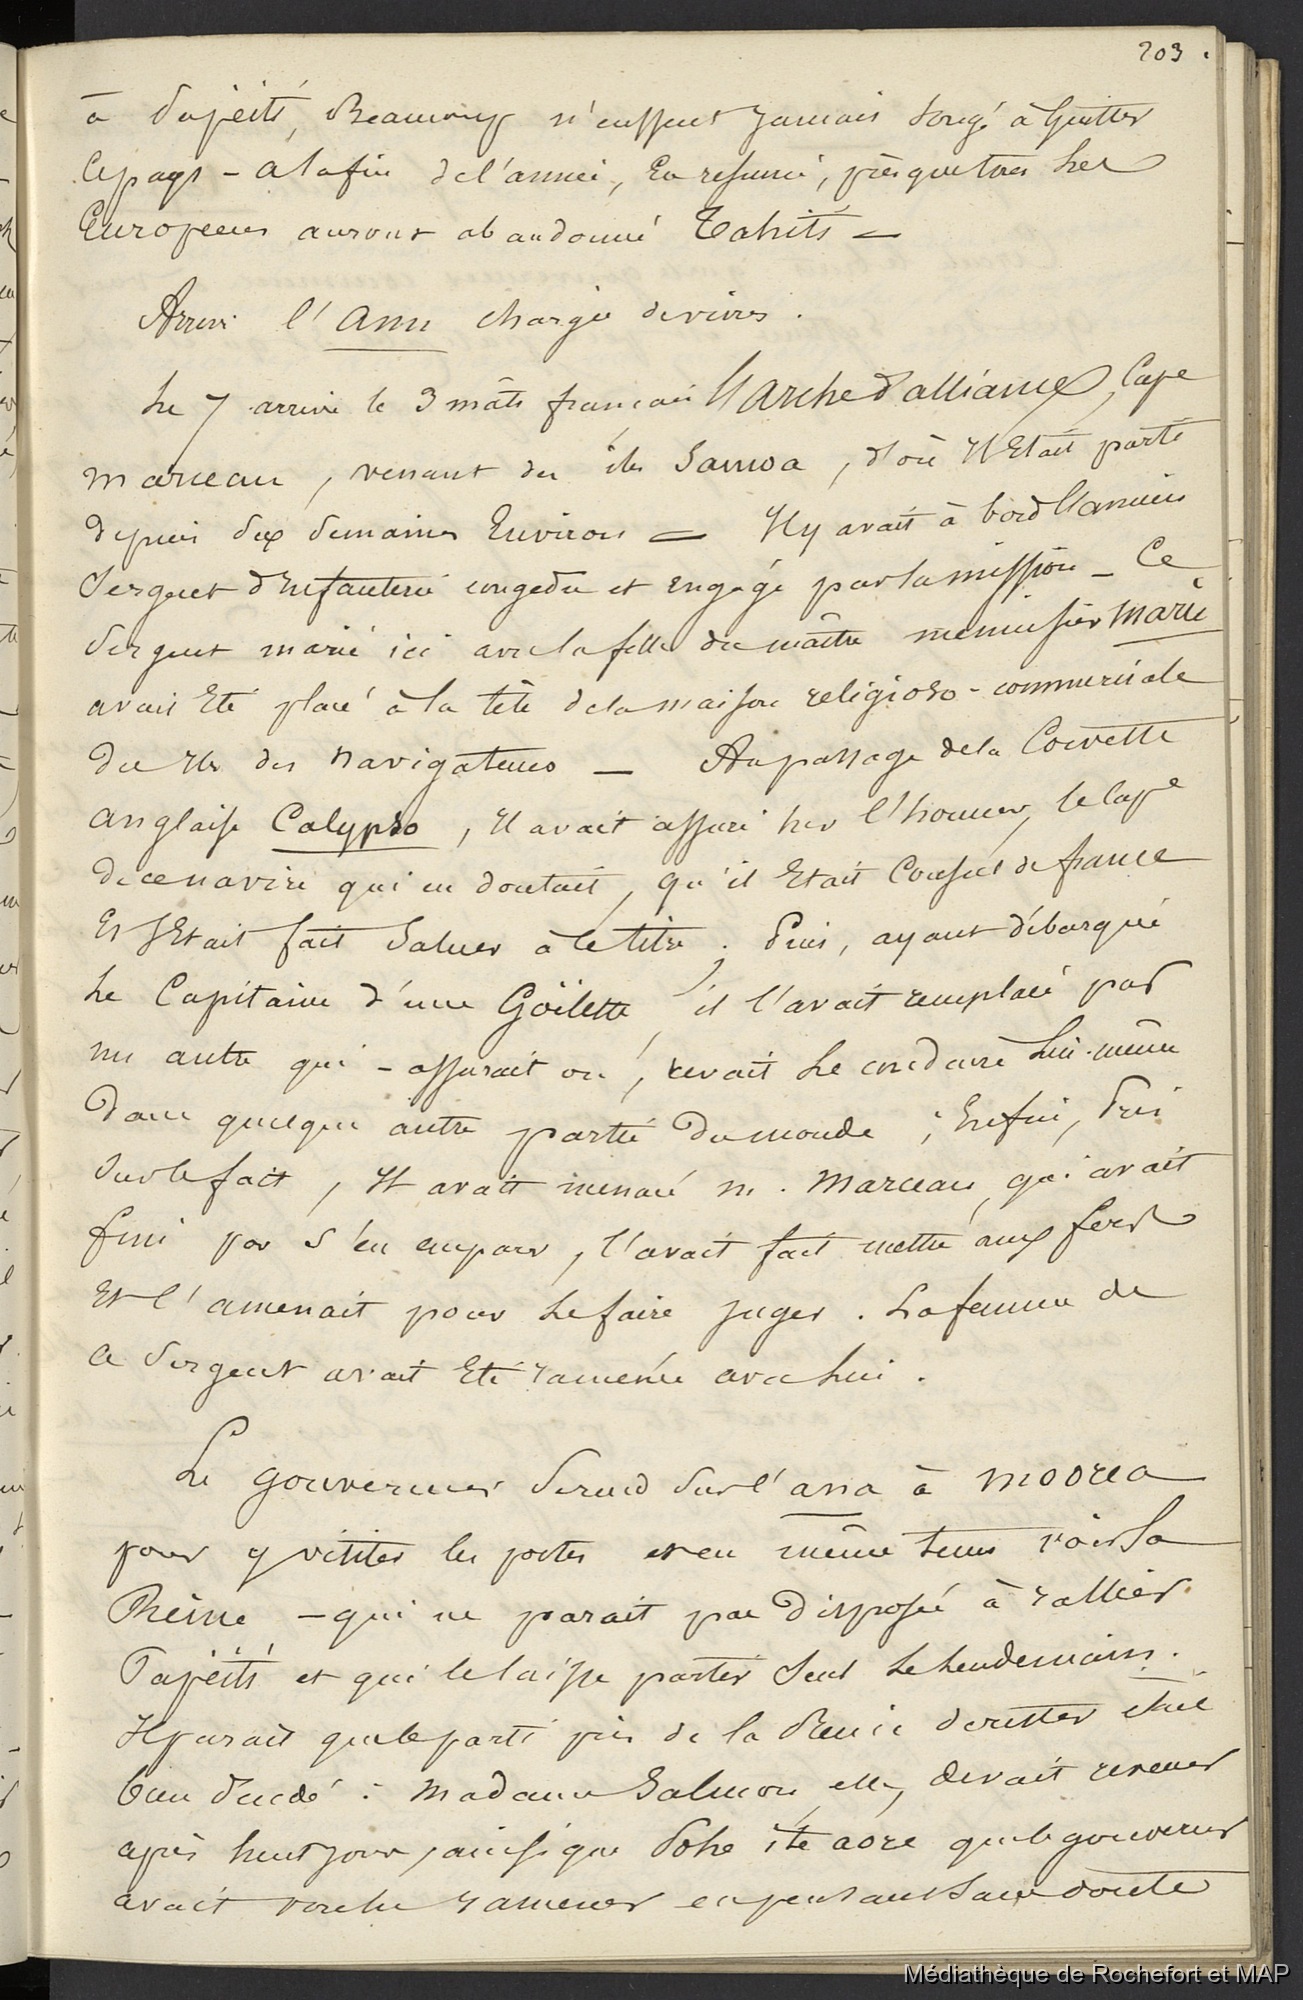 203.
à Papéïti, Beaucoup n'eussent jamais songé à quitter
le pays - à la fin de l'année, En resumé, presque tous les
Européens auront abandonné Tahiti =
Arrivé l'Ana chargée de vivres.
Le 7 arrive le 3 mâts français l'Arche d'alliance, Cape
Marceau, venant des îles Samoa, d'où Il Etait parti
depuis six semaines Environ = Il y avait à bord l'ancien
Sergent d'Infanterie congedié et engagé par la mission - Ce
Sergent marié ici avec la fille du maître menuisier Marie
avait Eté placé à la tête de la maison religioso-commerciale
des Iles des Navigateurs - Au passage de la Corvette
anglaise Calypso, Il avait assuré sur l'honneur, le Cape
de ce navire qui en doutait, qu'il Etait Consul de france
Et s'Etait fait Saluer à ce titre. Puis, ayant débarqué
Le Capitaine d'une Goëlette, il l'avait remplacé par
un autre qui - assurait on, devait le conduire lui-même
dans quelque autre partie du monde ; Enfin, Pris
sur le fait, Il avait menacé M. Marceau, qui avait
fini par s'en emparer, l'avait fait mettre aux fers
Et l'amenait pour le faire juger. La femme de
ce Sergent avait Eté ramenée avec lui.
Le gouverneur Se rend sur l'ana à Moorea
pour y visiter les postes et en même tems voir la
Reine - qui ne parait pas disposée à rallier
Papéïti et qui le laisse partir seul le lendemain.
Il parait que le parti pris de la Reine de rester était
bien décidé : Madame Salmon, elle, devait revenir
après huit jours, ainsi que Pohe ite aore que le gouverneur
avait voulu ramener en pensant sans doute
Médiathèque de Rochefort et MAP